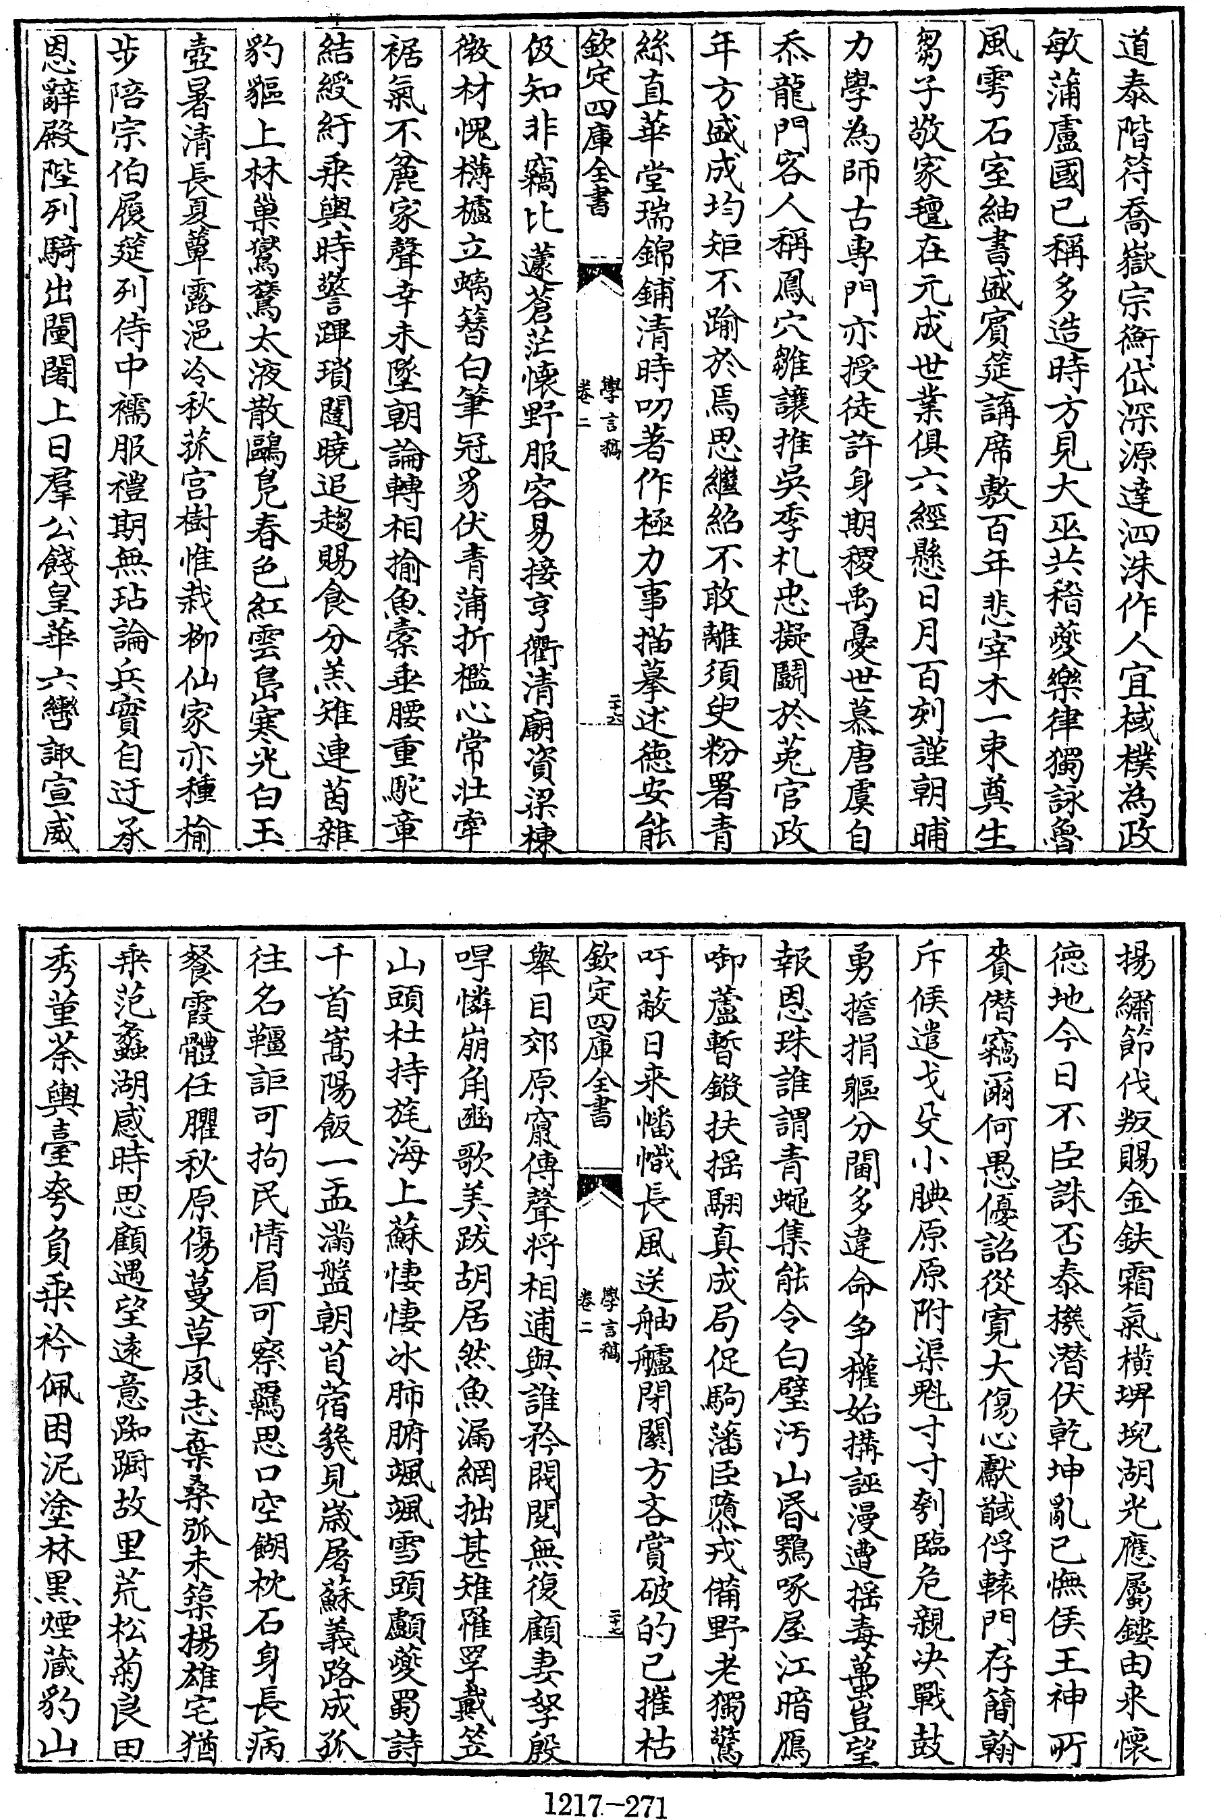 道泰階符喬嶽宗衡岱深源達泗洙作人宜棫樸為政
敏蒲盧國已稱多造時方見大巫共稽夔樂律獨詠魯
風雩石室紬書盛賓筵講席敷百年悲宰木一束奠生
芻子敬家氊在元成世業俱六經懸日月百刻謹朝晡
力學為師古專門亦授徒許身期稷禹憂世慕唐虞自
忝龍門客人稱鳳穴雛讓推吳季札忠擬鬬於菟官政
年方盛成均矩不踰於焉思繼紹不敢離須臾粉署青
絲直華堂瑞錦鋪清時叨著作極力事描摹述德安能
欽定四庫全書
學言稿
卷二
二十六
伋知非竊比蘧蒼茫懷野服容易接亨衢清廟資梁棟
微材愧欂櫨立螭簪白筆冠豸伏青蒲折檻心常壯牽
裾氣不麄家聲幸未墜朝論轉相揄魚橐垂腰重駝章
結綬紆乗輿時警蹕瑣闥曉追趨賜食分羔雉連茵雜
豹貙上林巢鸑鷟太液散鷗鳧春色紅雲島寒光白玉
壺暑清長夏簟露浥冷秋菰宮樹惟栽柳仙家亦種榆
步陪宗伯履筵列侍中襦服禮期無玷論兵實自迂承
恩辭殿陛列騎出闉闍上日羣公餞皇華六轡諏宣威
揚繡節伐叛賜金鈇霜氣橫埤堄湖光應屬鏤由來懷
德地今日不臣誅否泰機潛伏乾坤亂已憮侯王神所
賚僭竊爾何愚優詔從寛大傷心獻馘俘轅門存簡翰
斥候遣戈殳小腆原原附渠魁寸寸刳臨危親決戰鼓
勇擔捐軀分閫多違命爭權始搆誣漫遭揺毒蠆豈望
報恩珠誰謂青蠅集能令白璧汚山昏鶚啄屋江暗鴈
啣蘆暫鎩扶揺翮真成局促駒藩臣隳戎備野老獨驚
吁蔽日來幡幟長風送舳艫閉關方吝賞破的已摧枯
欽定四庫全書
學言稿
卷二
二十七
舉目郊原窵傳聲將相逋與誰矜閥閲無復顧妻孥殷
哻憐崩角豳歌美跋胡居然魚漏網拙甚雉罹罦戴笠
山頭杜持旄海上蘇悽悽冰肺腑颯颯雪頭顱夔蜀詩
千首嵩陽飯一盂滿盤朝苜蓿幾見歲屠蘇義路成孤
往名韁詎可拘民情眉可察羈思口空餬枕石身長病
餐霞體任臞秋原傷蔓草夙志棄桑弧未築揚雄宅猶
乗范蠡湖感時思顧遇望遠意踟蹰故里荒松菊良田
秀堇荼輿臺夸負乗衿佩困泥塗林黑煙藏豹山
1217—271